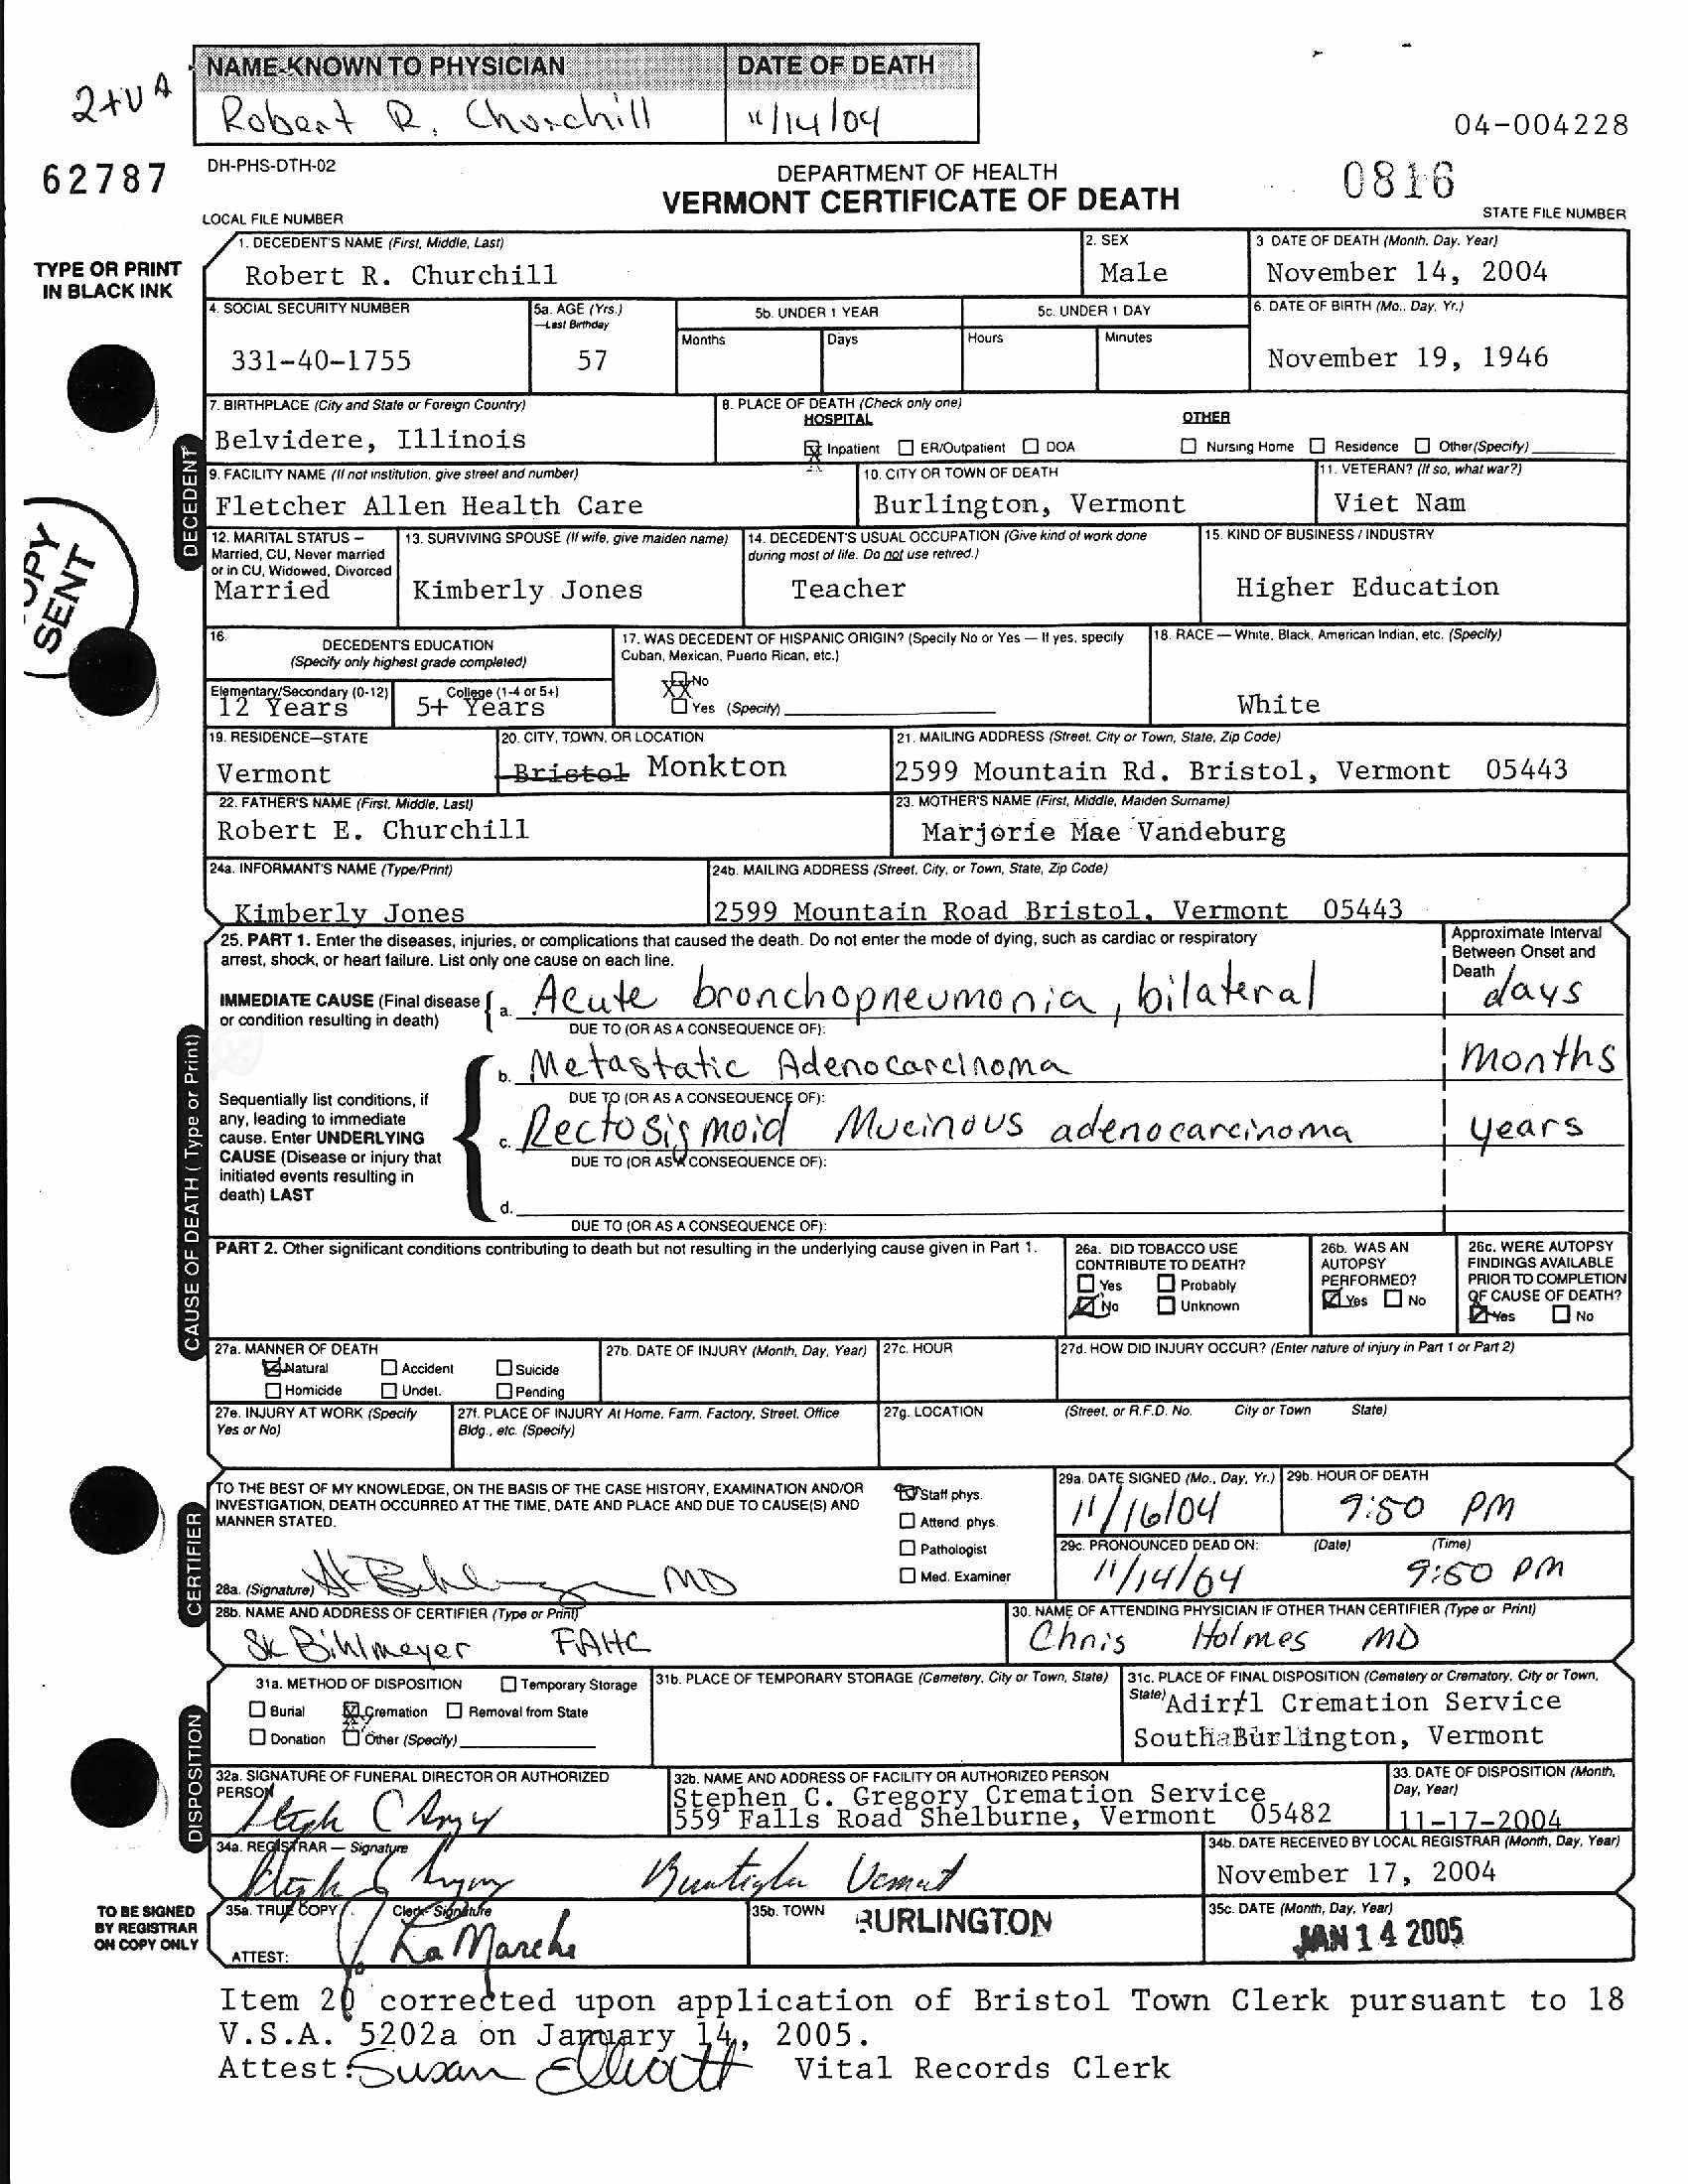 NAME-KNOWN TO PHYSICIAN DATE OF DEATH
2+VA
Robert R. Churchill 11/14/04
04-004228
62787
DH-PHS-DTH-02
DEPARTMENT OF HEALTH
VERMONT CERTIFICATE OF DEATH
0816
LOCAL FILE NUMBER
STATE FILE NUMBER
TYPE OR PRINT
IN BLACK INK
1. DECEDENT'S NAME (First, Middle, Last) 2. SEX 3 DATE OF DEATH (Month, Day, Year)
Robert R. Churchill Male November 14, 2004
4. SOCIAL SECURITY NUMBER 5a. AGE (Yrs.) 5b. UNDER 1 YEAR 5c. UNDER 1 DAY 6. DATE OF BIRTH (Mo., Day, Yr.)
—Last Birthday
Months Days Hours Minutes
331-40-1755 57 November 19, 1946
7. BIRTHPLACE (City and State or Foreign Country) 8. PLACE OF DEATH (Check only one)
HOSPITAL OTHER
Belvidere, Illinois Inpatient ER/Outpatient DOA Nursing Home Residence Other(Specify)
DECEDENT
9. FACILITY NAME (If not institution, give street and number) 10. CITY OR TOWN OF DEATH 11. VETERAN? (If so, what war?)
Fletcher Allen Health Care Burlington, Vermont Viet Nam
COPY
SENT
12. MARITAL STATUS – 13. SURVIVING SPOUSE (If wife, give maiden name) 14. DECEDENT'S USUAL OCCUPATION (Give kind of work done 15. KIND OF BUSINESS / INDUSTRY
Married, CU, Never married during most of life. Do not use retired.)
or in CU, Widowed, Divorced
Married Kimberly Jones Teacher Higher Education
16. DECEDENT'S EDUCATION 17. WAS DECEDENT OF HISPANIC ORIGIN? (Specify No or Yes — If yes, specify 18. RACE — White, Black, American Indian, etc. (Specify)
(Specify only highest grade completed) Cuban, Mexican, Puerto Rican, etc.)
Elementary/Secondary (0-12) College (1-4 or 5+) XX No
12 Years 5+ Years Yes (Specify) White
19. RESIDENCE—STATE 20. CITY, TOWN, OR LOCATION 21. MAILING ADDRESS (Street, City or Town, State, Zip Code)
Vermont Bristol Monkton 2599 Mountain Rd. Bristol, Vermont 05443
22. FATHER'S NAME (First, Middle, Last) 23. MOTHER'S NAME (First, Middle, Maiden Surname)
Robert E. Churchill Marjorie Mae Vandeburg
24a. INFORMANT'S NAME (Type/Print) 24b. MAILING ADDRESS (Street, City, or Town, State, Zip Code)
Kimberly Jones 2599 Mountain Road Bristol, Vermont 05443
25. PART 1. Enter the diseases, injuries, or complications that caused the death. Do not enter the mode of dying, such as cardiac or respiratory Approximate Interval
arrest, shock, or heart failure. List only one cause on each line. Between Onset and
Death
IMMEDIATE CAUSE (Final disease a. Acute bronchopneumonia, bilateral days
or condition resulting in death) DUE TO (OR AS A CONSEQUENCE OF):
b. Metastatic Adenocarcinoma months
Sequentially list conditions, if DUE TO (OR AS A CONSEQUENCE OF):
any, leading to immediate
cause. Enter UNDERLYING c. Rectosigmoid Mucinous adenocarcinoma years
CAUSE (Disease or injury that DUE TO (OR AS A CONSEQUENCE OF):
initiated events resulting in
death) LAST
d.
DUE TO (OR AS A CONSEQUENCE OF):
CAUSE OF DEATH ( Type or Print)
PART 2. Other significant conditions contributing to death but not resulting in the underlying cause given in Part 1. 26a. DID TOBACCO USE 26b. WAS AN 26c. WERE AUTOPSY
CONTRIBUTE TO DEATH? AUTOPSY FINDINGS AVAILABLE
Yes Probably PERFORMED? PRIOR TO COMPLETION
No Unknown Yes No OF CAUSE OF DEATH?
Yes No
27a. MANNER OF DEATH 27b. DATE OF INJURY (Month, Day, Year) 27c. HOUR 27d. HOW DID INJURY OCCUR? (Enter nature of injury in Part 1 or Part 2)
Natural Accident Suicide
Homicide Undet. Pending
27e. INJURY AT WORK (Specify 27f. PLACE OF INJURY At Home, Farm, Factory, Street, Office 27g. LOCATION (Street, or R.F.D. No. City or Town State)
Yes or No) Bldg., etc. (Specify)
TO THE BEST OF MY KNOWLEDGE, ON THE BASIS OF THE CASE HISTORY, EXAMINATION AND/OR Staff phys. 29a. DATE SIGNED (Mo., Day, Yr.) 29b. HOUR OF DEATH
INVESTIGATION, DEATH OCCURRED AT THE TIME, DATE AND PLACE AND DUE TO CAUSE(S) AND
MANNER STATED. Attend. phys. 11/16/04 9:50 PM
Pathologist 29c. PRONOUNCED DEAD ON: (Date) (Time)
28a. (Signature) MD Med. Examiner 11/14/04 9:50 PM
CERTIFIER
28b. NAME AND ADDRESS OF CERTIFIER (Type or Print) 30. NAME OF ATTENDING PHYSICIAN IF OTHER THAN CERTIFIER (Type or Print)
SK Bihlmeyer FAHC Chris Holmes MD
31a. METHOD OF DISPOSITION Temporary Storage 31b. PLACE OF TEMPORARY STORAGE (Cemetery, City or Town, State) 31c. PLACE OF FINAL DISPOSITION (Cemetery or Crematory, City or Town,
Burial Cremation Removal from State State) Cremation Service
Donation Other (Specify) South Burlington, Vermont
DISPOSITION
32a. SIGNATURE OF FUNERAL DIRECTOR OR AUTHORIZED 32b. NAME AND ADDRESS OF FACILITY OR AUTHORIZED PERSON 33. DATE OF DISPOSITION (Month,
PERSON Stephen C. Gregory Cremation Service Day, Year)
559 Falls Road Shelburne, Vermont 05482 11-17-2004
34a. REGISTRAR — Signature 34b. DATE RECEIVED BY LOCAL REGISTRAR (Month, Day, Year)
November 17, 2004
TO BE SIGNED
BY REGISTRAR
ON COPY ONLY
35a. TRUE COPY Clerk Signature 35b. TOWN BURLINGTON 35c. DATE (Month, Day, Year)
ATTEST: J. LaMarche JAN 14 2005
Item 20 corrected upon application of Bristol Town Clerk pursuant to 18
V.S.A. 5202a on January 14, 2005.
Attest: Susan Elliott Vital Records Clerk